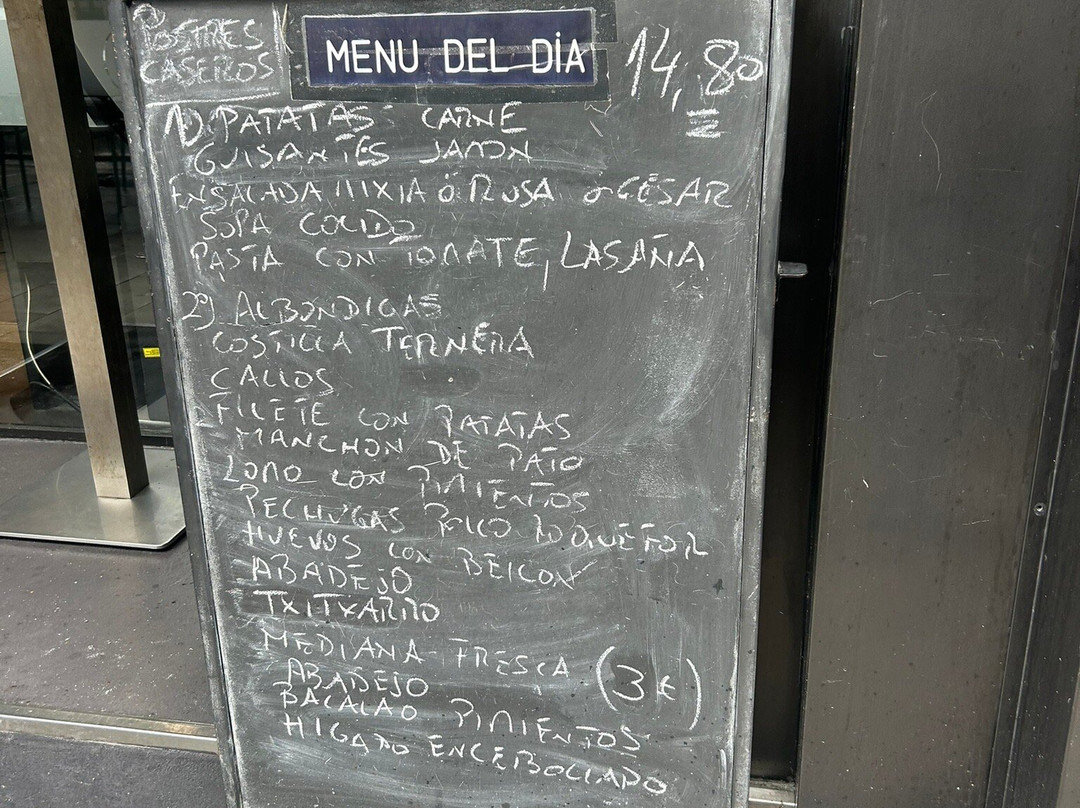 POSTRES
CASEROS
MENU DEL DÍA
14,80
1º) PATATAS CARNE
GUISANTES JAMON
ENSALADA MIXTA O RUSA o CÉSAR
SOPA COCIDO
PASTA CON TOMATE, LASAÑA
2º) ALBONDIGAS
COSTILLA TERNERA
CALLOS
FILETE CON PATATAS
MANCHON DE PATO
LOMO CON PIMIENTOS
PECHUGAS POLLO ROQUEFOR
HUEVOS CON BEICON
ABADEJO
TXITXARRO
MEDIANA FRESCA (3€)
ABADEJO
BACALAO PIMIENTOS
HIGADO ENCEBOLLADO